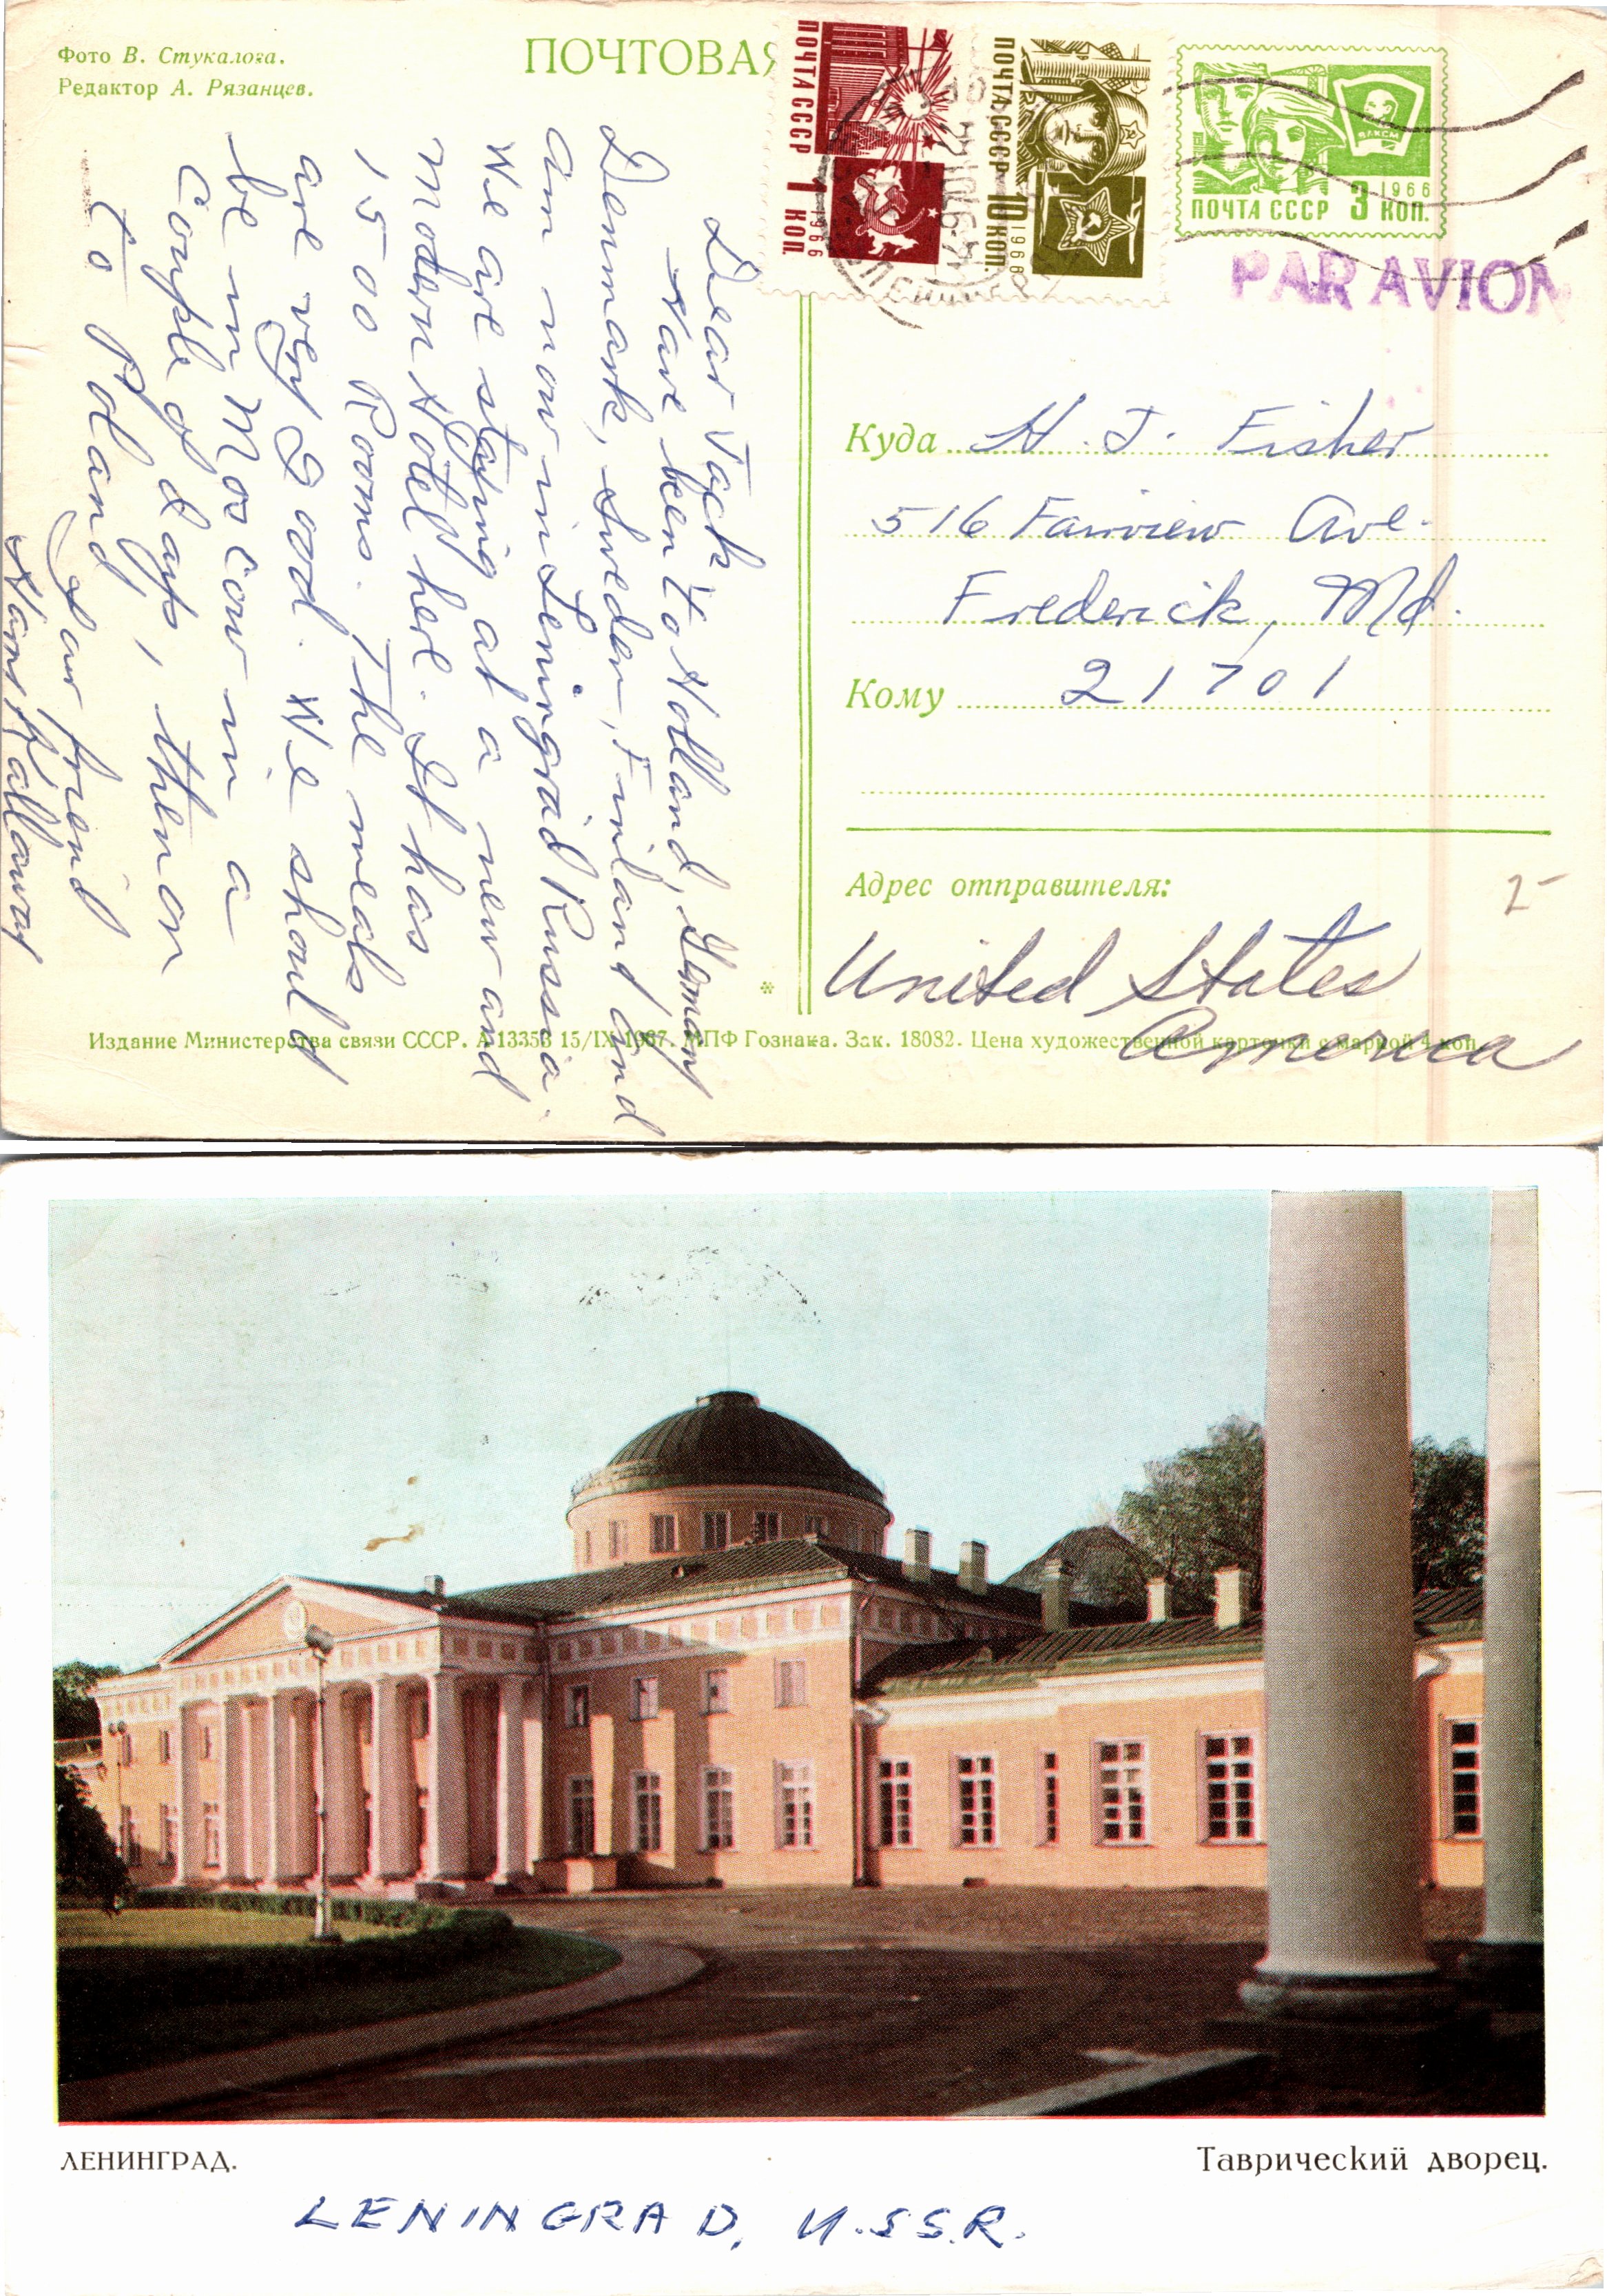 Фото В. Стукалова.
Редактор А. Рязанцев.
ПОЧТОВАЯ
ПОЧТА СССР 1 КОП.
1966
ПОЧТА СССР 10 КОП.
1966
ВЛКСМ
1966
ПОЧТА СССР 3 КОП.
PAR AVION
Dear Jack
Have been to Holland, Germany
Denmark, Sweden, Finland and
am now in Leningrad Russia.
We are staying at a new and
modern Hotel here. It has
1500 Rooms. The meals
are very Good. We should
be in Moscow in a
couple of days, then on
to Poland
Your friend
Куда H. J. Fisher
516 Fairview Ave.
Frederick, Md.
Кому 21701
Адрес отправителя:
2-
United States
America
Издание Министерства связи СССР. А 13353 15/IX-1967. МПФ Гознака. Зак. 18082. Цена художественной карточки с маркой 4 коп.
ЛЕНИНГРАД.
Таврический дворец.
LENINGRAD, U.S.S.R.